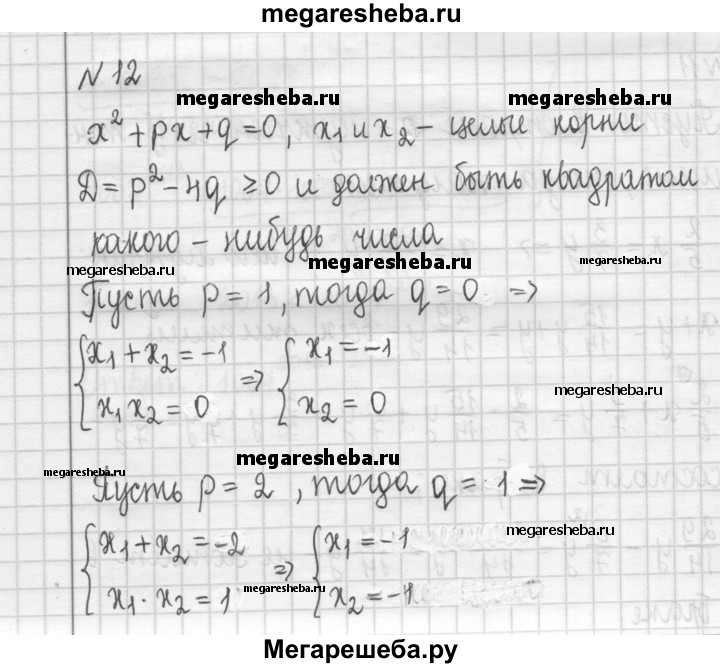 megaresheba.ru
N 12
megaresheba.ru megaresheba.ru
x² + px + q = 0, x₁ и x₂ - целые корни
D = p² - 4q ≥ 0 и должен быть квадратом
какого - нибудь числа
megaresheba.ru megaresheba.ru
Пусть p = 1, тогда q = 0 ⇒
{ x₁ + x₂ = -1 ⇒ { x₁ = -1
x₁ x₂ = 0 x₂ = 0
megaresheba.ru
megaresheba.ru megaresheba.ru
Пусть p = 2, тогда q = 1 ⇒
megaresheba.ru
{ x₁ + x₂ = -2 ⇒ { x₁ = -1
x₁ · x₂ = 1 x₂ = -1
megaresheba.ru
Мегарешеба.ру